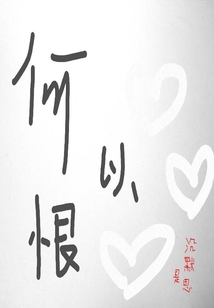 何以恨